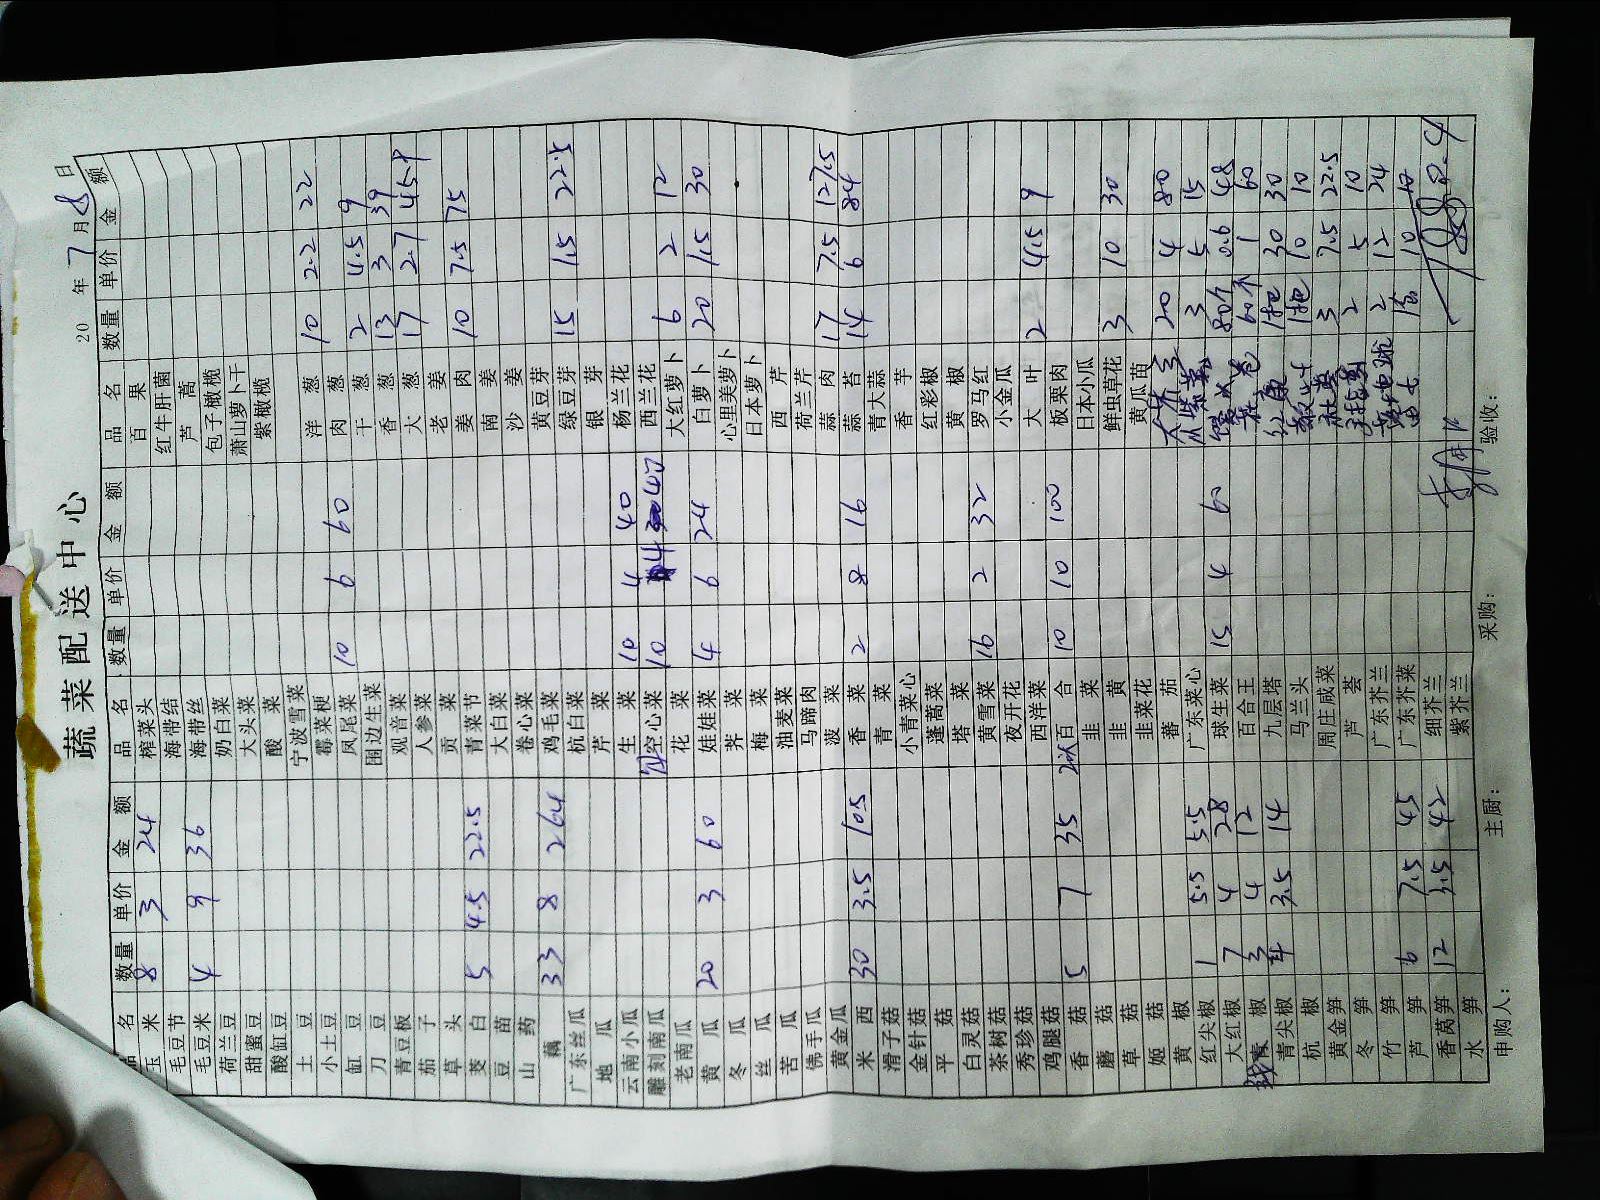 蔬菜配送中心
20 年 7 月 8 日
品名 数量 单价 金额 品名 数量 单价 金额 品名 数量 单价 金额
玉米 8 3 24 榨菜头 百果
毛豆节 海带结 红牛肝菌
毛豆米 4 9 36 海带丝 芦蒿
荷兰豆 奶白菜 包子橄榄
甜蜜豆 大头菜 萧山萝卜干
酸缸豆 酸菜 紫橄榄
土豆 宁波雪菜
小土豆 霉菜梗 洋葱 10 2.2 22
缸豆 凤尾菜 10 6 60 肉葱
刀豆 围边生菜 干葱 2 4.5 9
青豆板 观音菜 香葱 13 3 39
茄子 人参菜 大葱 17 2.7 45.9
草头 贡菜 老姜
茭白 5 4.5 22.5 青菜节 姜肉 10 7.5 75
豆苗 大白菜 南姜
山药 卷心菜 沙姜
藕 33 8 264 鸡毛菜 黄豆芽
广东丝瓜 杭白菜 绿豆芽 15 1.5 22.5
地瓜 芹菜 银芽
云南小瓜 生菜 10 4 40 杨兰花
雕刻南瓜 空心菜 10 4 40 西兰花
老南瓜 花菜 大红萝卜 6 2 12
黄瓜 20 3 60 娃娃菜 4 6 24 白萝卜 20 1.5 30
冬瓜 荠菜 心里美萝卜
丝瓜 梅菜 日本萝卜
苦瓜 油麦菜 西芹
佛手瓜 马蹄肉 荷兰芹
黄金瓜 菠菜 蒜肉 17 7.5 127.5
米西 30 3.5 105 香菜 2 8 16 蒜苔 14 6 84
滑子菇 青菜 青大蒜
金针菇 小青菜心 香芋
平菇 蓬蒿菜 红彩椒
白灵菇 塔菜 黄椒
茶树菇 黄雪菜 16 2 32 罗马红
秀珍菇 夜开花 小金瓜
鸡腿菇 西洋菜 大叶 2 4.5 9
香菇 5 7 35 百合 10 10 100 板栗肉
蘑菇 韭菜 日本小瓜
草菇 韭黄 鲜虫草花 3 10 30
姬菇 韭菜花 黄瓜苗
黄椒 蕃茄 20 4 80
红尖椒 1 5.5 5.5 广东菜心 3 5 15
大红椒 7 4 28 球生菜 15 4 60 80个 0.6 48
青椒 3 4 12 百合王 60个 1 60
青尖椒 4 3.5 14 九层塔 1包 30 30
杭椒 马兰头 1包 10 10
黄金笋 周庄咸菜 3 7.5 22.5
冬笋 芦荟 2 5 10
竹笋 广东芥兰 2 12 24
芦笋 6 7.5 45 广东芥菜 10 10
香莴笋 12 3.5 42 细芥兰
水笋 紫芥兰 1980.4
申购人： 主厨： 采购： 验收：